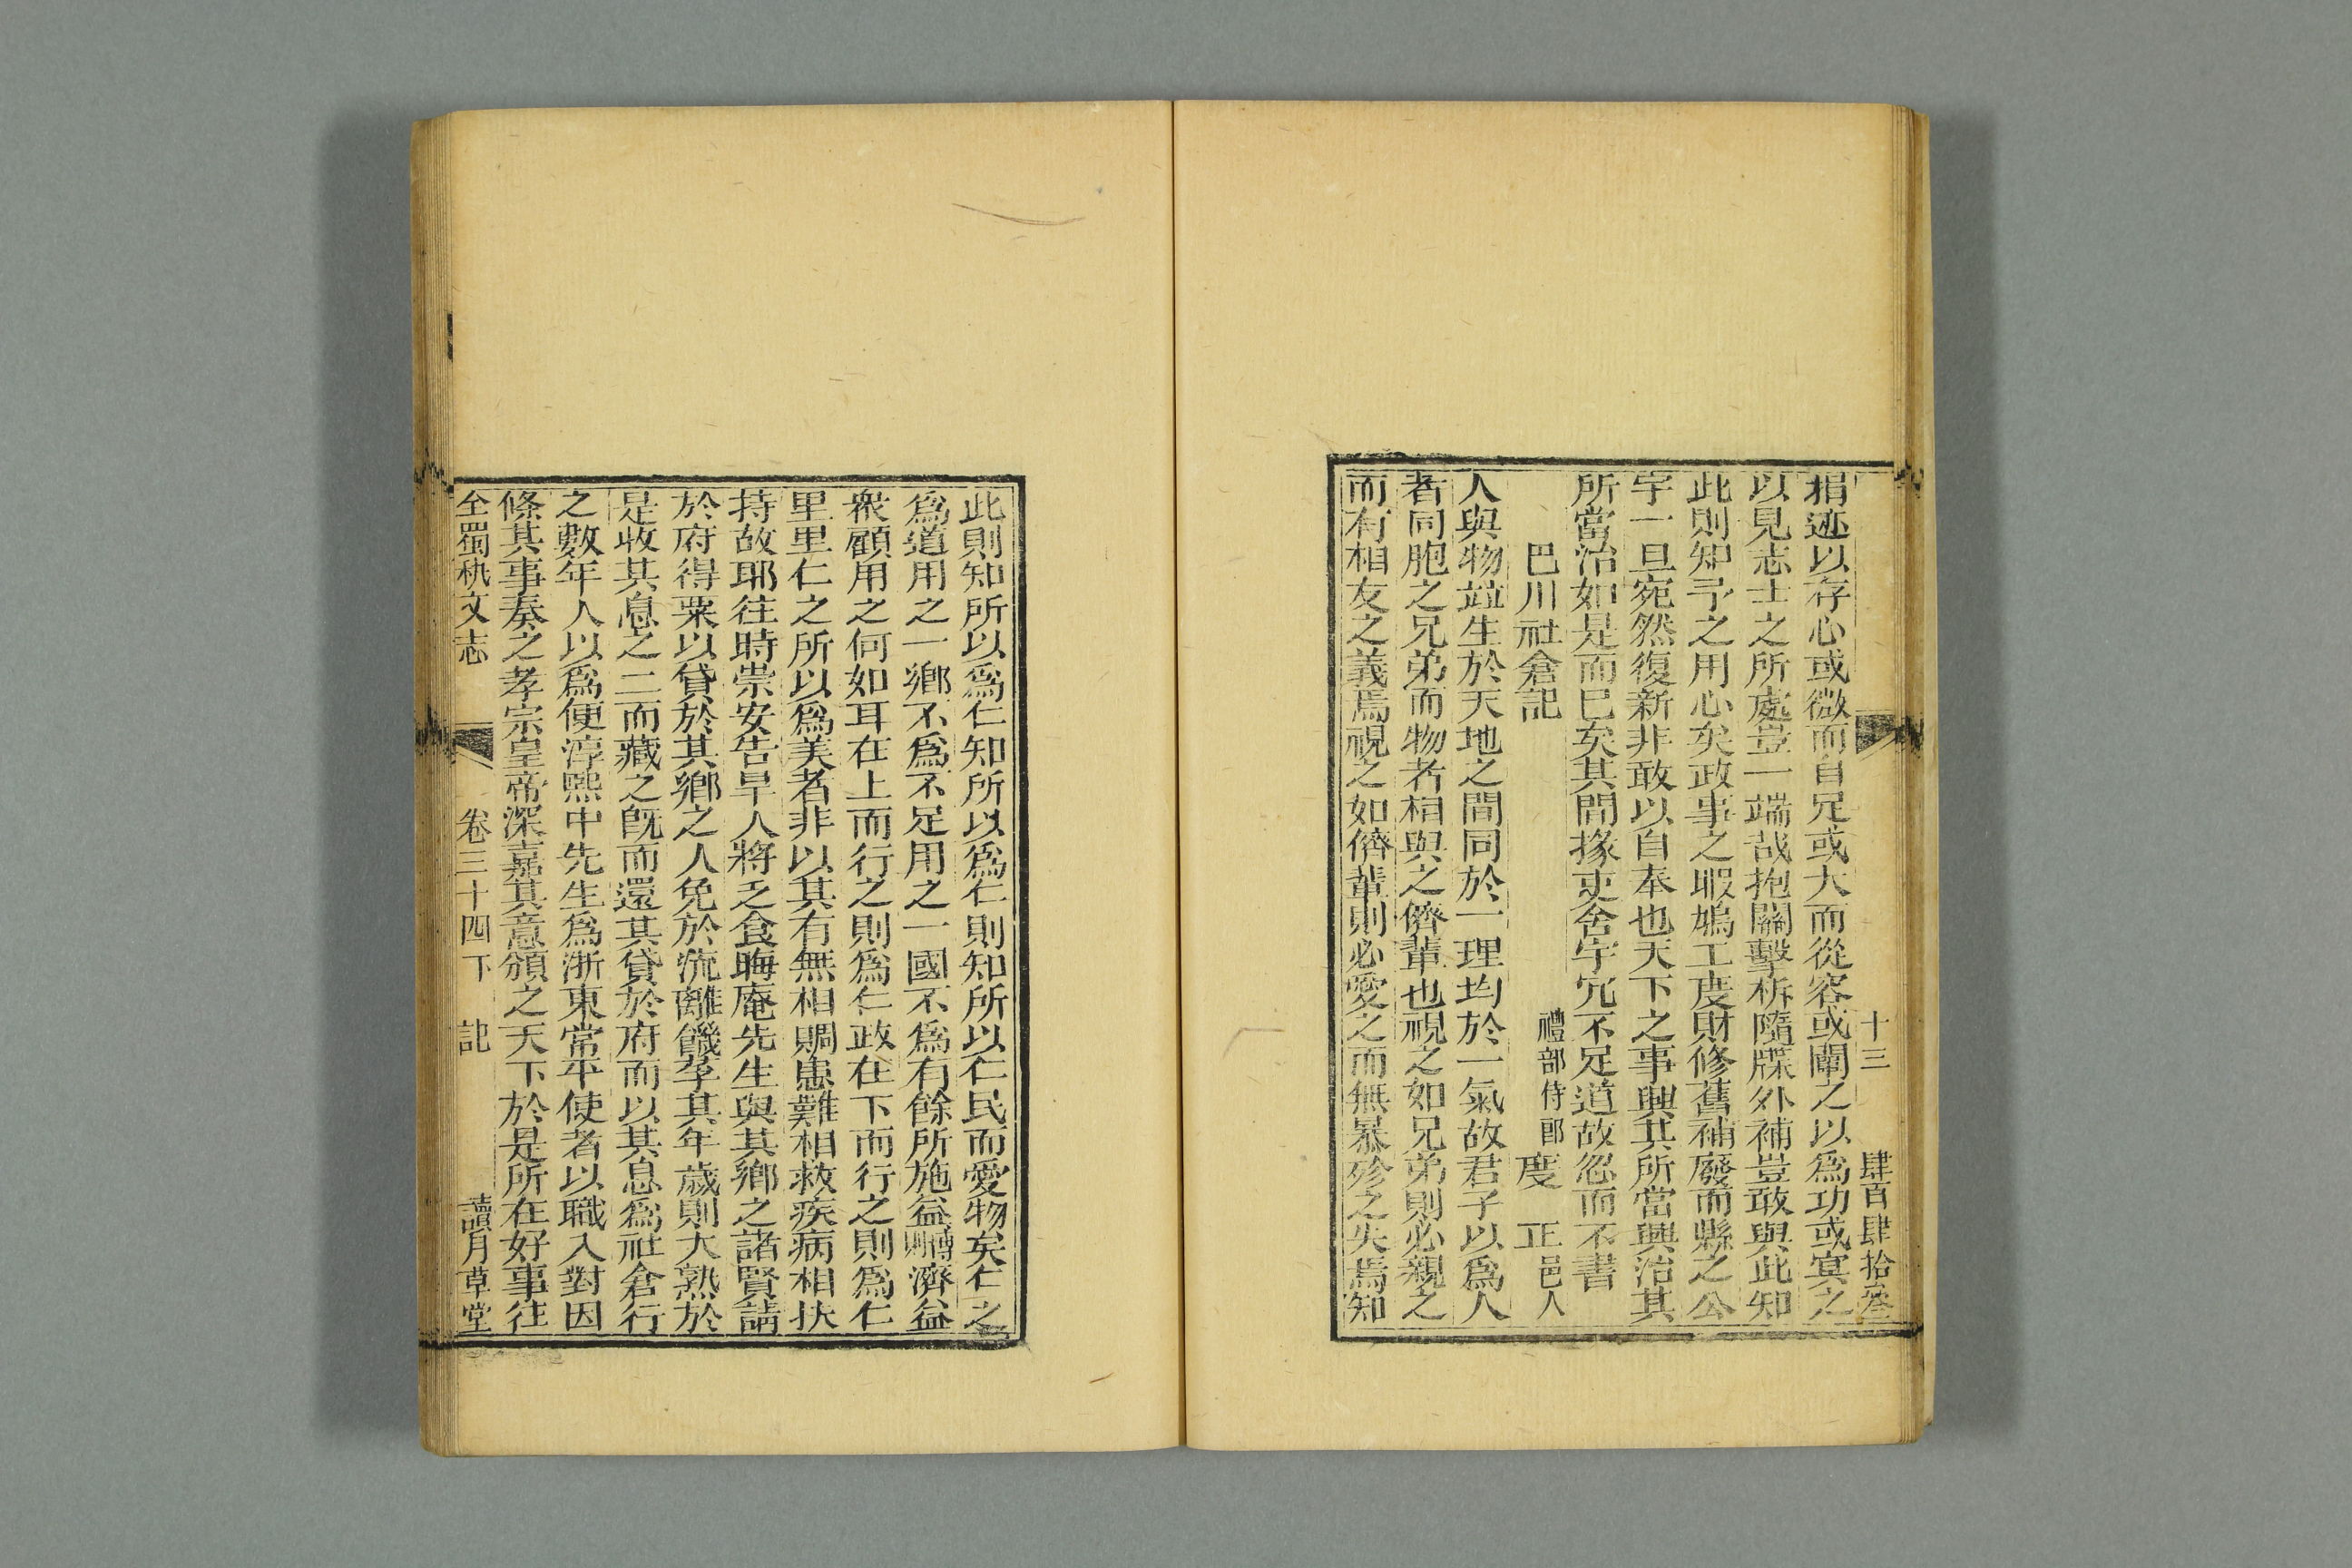 十三　肆百肆拾叄
捐迹以存心或微而自足或大而從容或闡之以爲功或寞之
以見志士之所處豈一端哉抱關擊柝隨牒外補豈敢與此知
此則知予之用心矣政事之暇鳩工庋財修舊補廢而縣之公
宇一旦宛然復新非敢以自奉也天下之事興其所當興治其
所當治如是而已矣其間掾吏舍宇宂不足道故忽而不書
巴川社倉記　禮部侍郎　度　正邑人
人與物竝生於天地之間同於一理均於一氣故君子以爲人
者同胞之兄弟而物者相與之儕輩也視之如兄弟則必親之
而有相友之義焉視之如儕輩則必愛之而無暴殄之失焉知
此則知所以爲仁知所以爲仁則知所以仁民而愛物矣仁之
爲道用之一鄉不爲不足用之一國不爲有餘所施益博則濟益
衆顧用之何如耳在上而行之則爲仁政在下而行之則爲仁
里里仁之所以爲美者非以其有無相賙患難相救疾病相扶
持故耶往時崇安告旱人將乏食晦庵先生與其鄉之諸賢請
於府得粟以貸於其鄉之人免於流離饑莩其年歲則大熟於
是收其息之二而藏之旣而還其貸於府而以其息爲社倉行
之數年人以爲便淳熙中先生爲浙東常平使者以職入對因
條其事奏之孝宗皇帝深嘉其意頒之天下於是所在好事往
全蜀秇文志　卷三十四下　記　讀月草堂